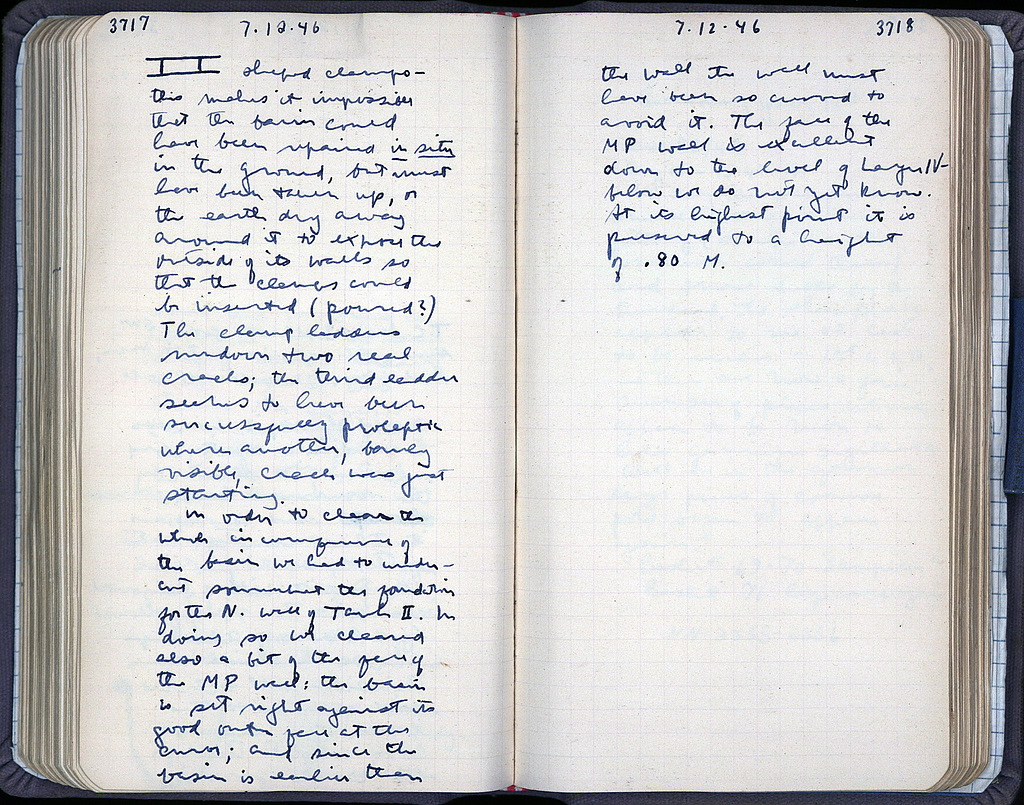 3717
7.12.46
shaped clamps –
this makes it impossible
that the basin could
have been repaired in situ
in the ground, but must
have been taken up, or
the earth dug away
around it to expose the
outside of its walls so
that the clamps could
be inserted (poured?)
The clamp ladders
run down two real
cracks; the third ladder
seems to have been
successfully proleptic
where another, barely
visible, crack was just
starting.
In order to clean the
whole circumference of
the basin we had to under-
cut somewhat the foundation
for the N. wall of Tank II. In
doing so we cleared
also a bit of the face of
the MP wall: the basin
is set right against its
good outer face at the
curve; and since the
basin is earlier than
7.12.46
3718
the wall the wall must
have been so curved to
avoid it. The face of the
MP wall is excellent
down to the level of Layer IV–
below we do not yet know.
At its highest point it is
preserved to a height
of .80 M.